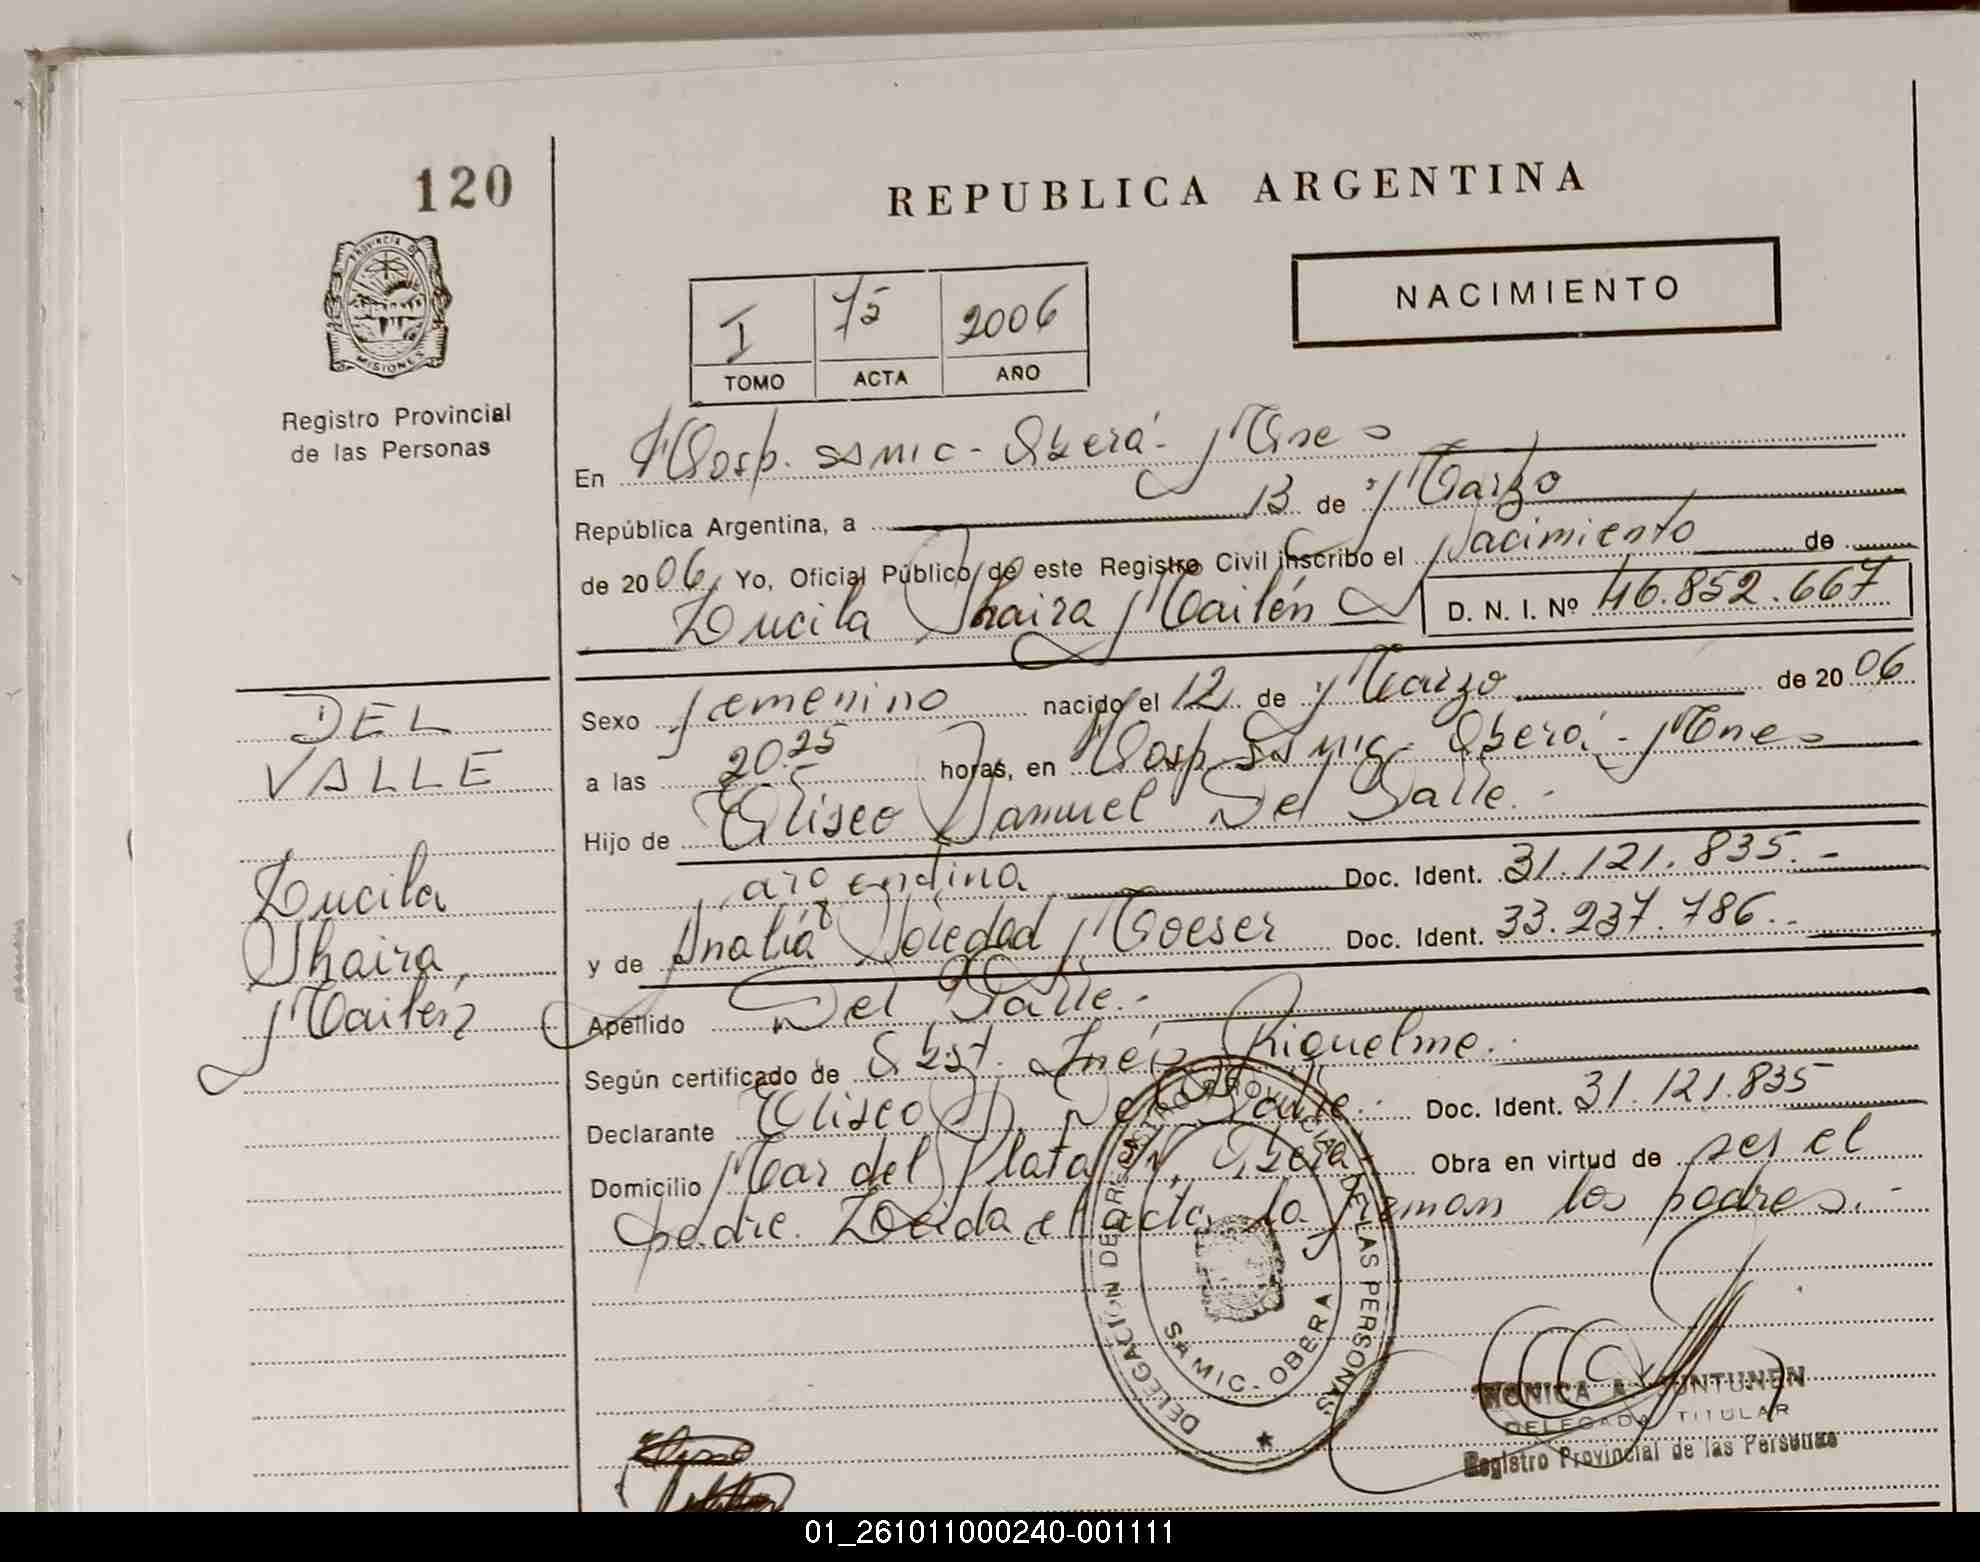 120
REPUBLICA ARGENTINA
PROVINCIA DE
MISIONES
NACIMIENTO
I 75 2006
TOMO ACTA AÑO
Registro Provincial
de las Personas
En Hosp. SAMIC - Oberá - Mnes
República Argentina, a 13 de Marzo
de 2006, Yo, Oficial Público de este Registro Civil inscribo el Nacimiento de
Lucila Thaira Mailén D. N. I. Nº 46.852.667
Sexo femenino nacido el 12 de Marzo de 2006
a las 20.25 horas, en Hosp. SAMIC - Oberá - Mnes
Hijo de Eliseo Samuel Del Valle.-
argentina Doc. Ident. 31.121.835.-
y de Analía Soledad Moeser Doc. Ident. 33.237.786.-
Apellido Del Valle.-
Según certificado de Obst. Inés Riquelme.-
Declarante Eliseo S. Del Valle.- Doc. Ident. 31.121.835
Domicilio Mar del Plata S/N, Oberá.- Obra en virtud de ser el
padre. Leida el acta, la firman los padres.-
DEL
VALLE
Lucila
Thaira
Mailén
DELEGACION DE REGISTRO PROVINCIAL DE LAS PERSONAS
SAMIC - OBERA
MONICA A. JONTUNEN
DELEGADA TITULAR
Registro Provincial de las Personas
01_261011000240-001111